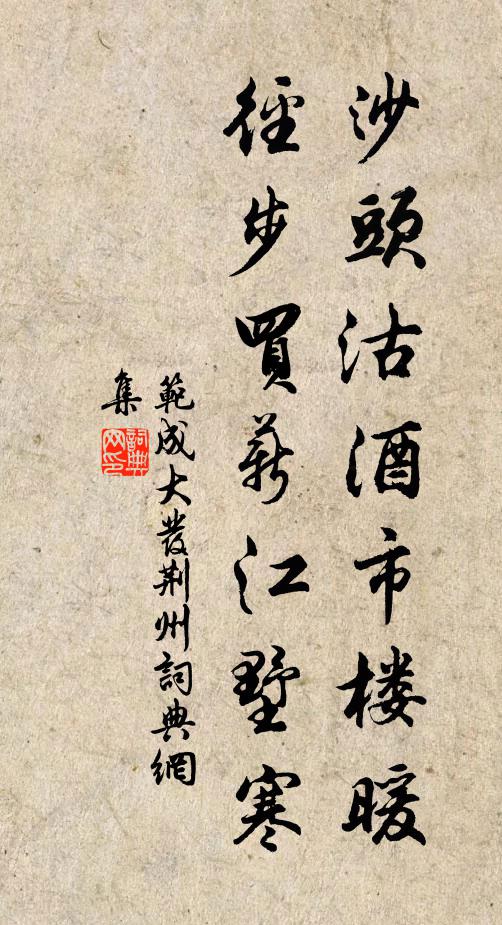 沙頭沽酒市楼暖
徑步買薪江墅寒
範成大發荆州詞典網
集
詞典网印